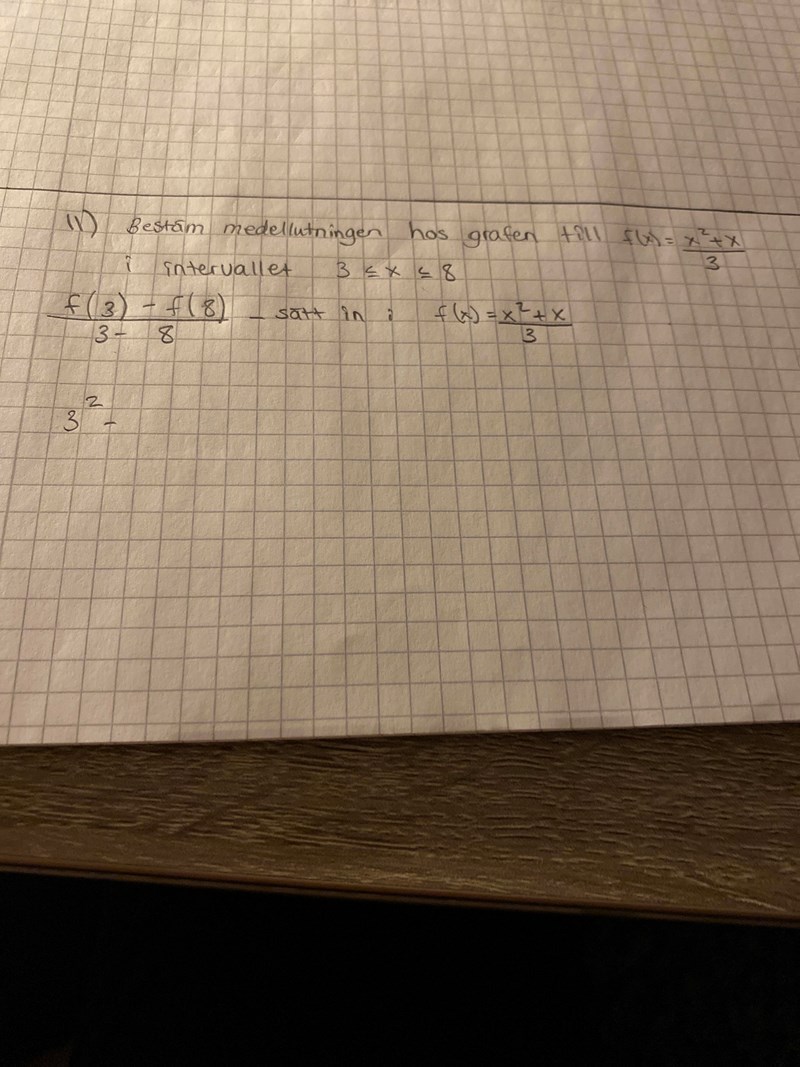 11) Bestäm medellutningen hos grafen till f(x) = x²+x/3
i intervallet 3 ≤ x ≤ 8
f(3) - f(8)/3 - 8 - sätt in i f(x) = x²+x/3
3² -